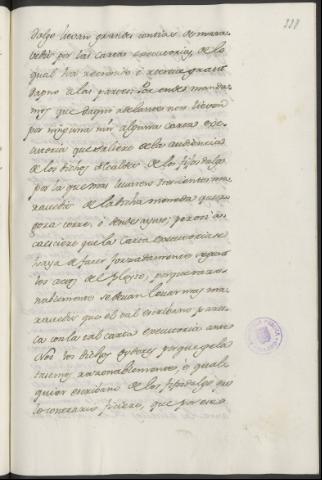 228
dalgo lievan grandes contias de mara
vedis por las cartas executorias, de lo
qual ha recrecido i recrece grant
dapno a las partes: Por ende manda
mos que daqui adelante non lieven
por ninguna nin alguna carta exe
cutoria que saliere de la audiencia
de los dichos Alcaldes de los fijosdalgo
por la que mas levaren trescientos ma
ravedis de la dicha moneda que ago
ra corre, i dende ayuso; pero si a
caesciere que la carta executoria se
haya de facer
los actos del Pleyto, porque razo
nablemente se devan levar mas ma
ravedis que el tal escribano parez
ca con la tal carta executoria ante
Nos los dichos oydores porque gela
tasemos razonablemente, i qual
quier escribano de los fijosdalgo que
lo contrario ficiere, que por esse